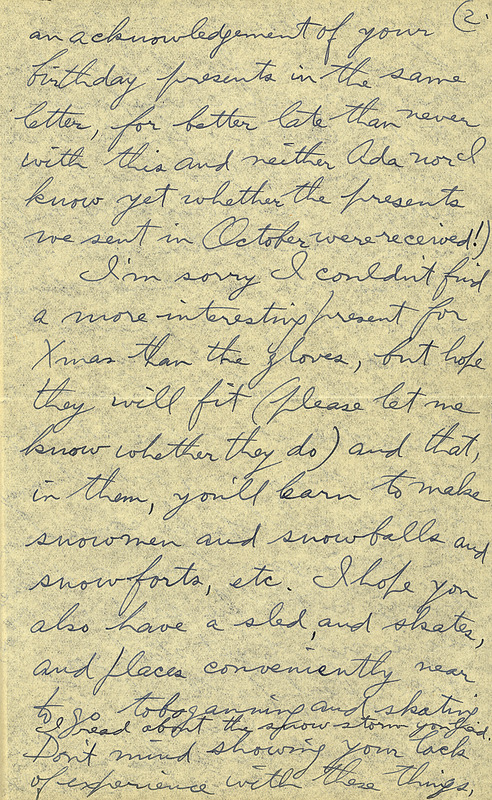 2.
an acknowledgement of your
birthday presents in the same
letter, for better late than never
with this and neither Ada nor I
know yet whether the presents
we sent in October were received!)
I'm sorry I couldn't find
a more interesting present for
Xmas than the gloves, but hope
they will fit (please let me
know whether they do) and that,
in them, you'll learn to make
snowmen and snowballs and
snowforts, etc. I hope you
also have a sled, and skates,
and places conveniently near
to go tobogganning and skating
I read about the snow storm you had.
Don't mind showing your lack
of experience with these things,